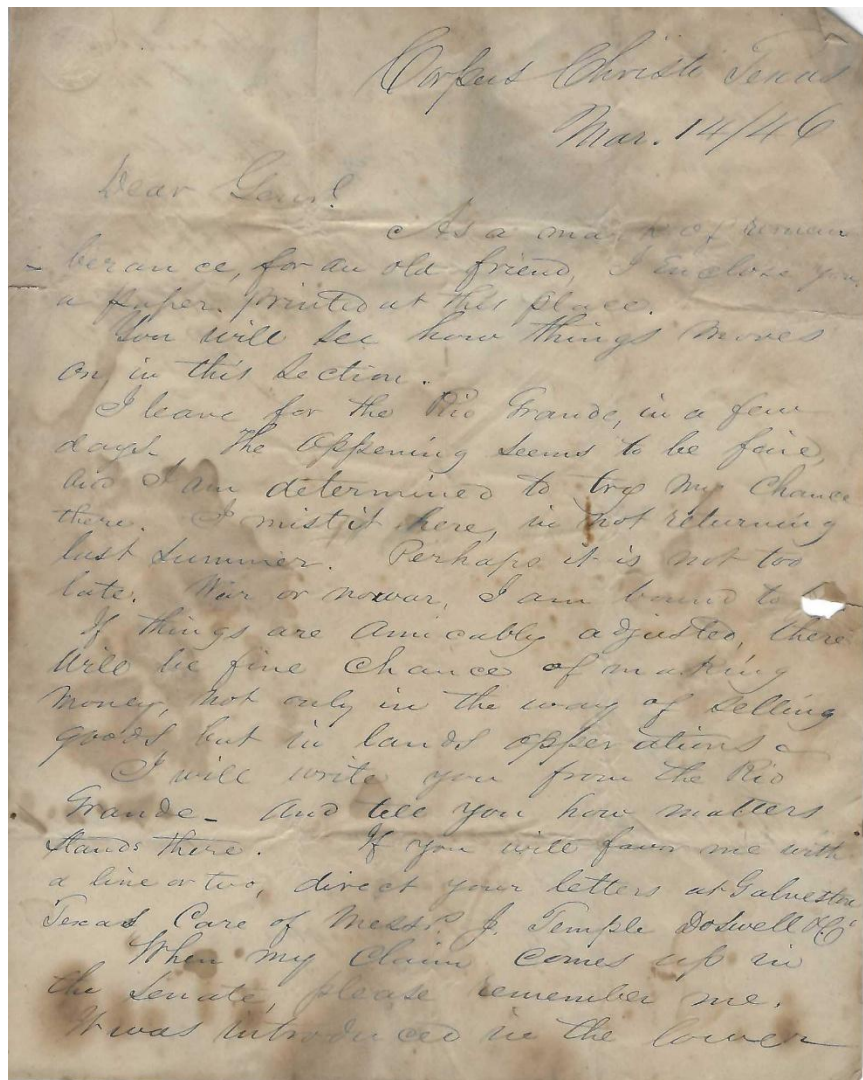 Corpus Christi Texas
Mar. 14/46
Dear Genl.
As a mark of remem
berance, for an old friend, I Enclose you,
a paper. printed at this place.
You will see how things moves
on in this Section.
I leave for the Rio Grande, in a few
days. The oppening seems to be faire,
and I am determined to try my Chance
there. I mist it here, in not returning
last Summer. Perhaps it is not too
late. War or nowar, I am bound to
If things are Amicably adjusted, there
Will be fine Chance of making
Money, not only in the way of Selling
goods but in lands opperations-
I will write you from the Rio
Grande- And tell you how matters
Stands there. If you will favor me with
a line or two, direct your letters at Galveston
Texas Care of Messrs. J. Temple Doswell & Co
When my Claim Comes up in
the Senate, please remember me.
It was introduced in the lower